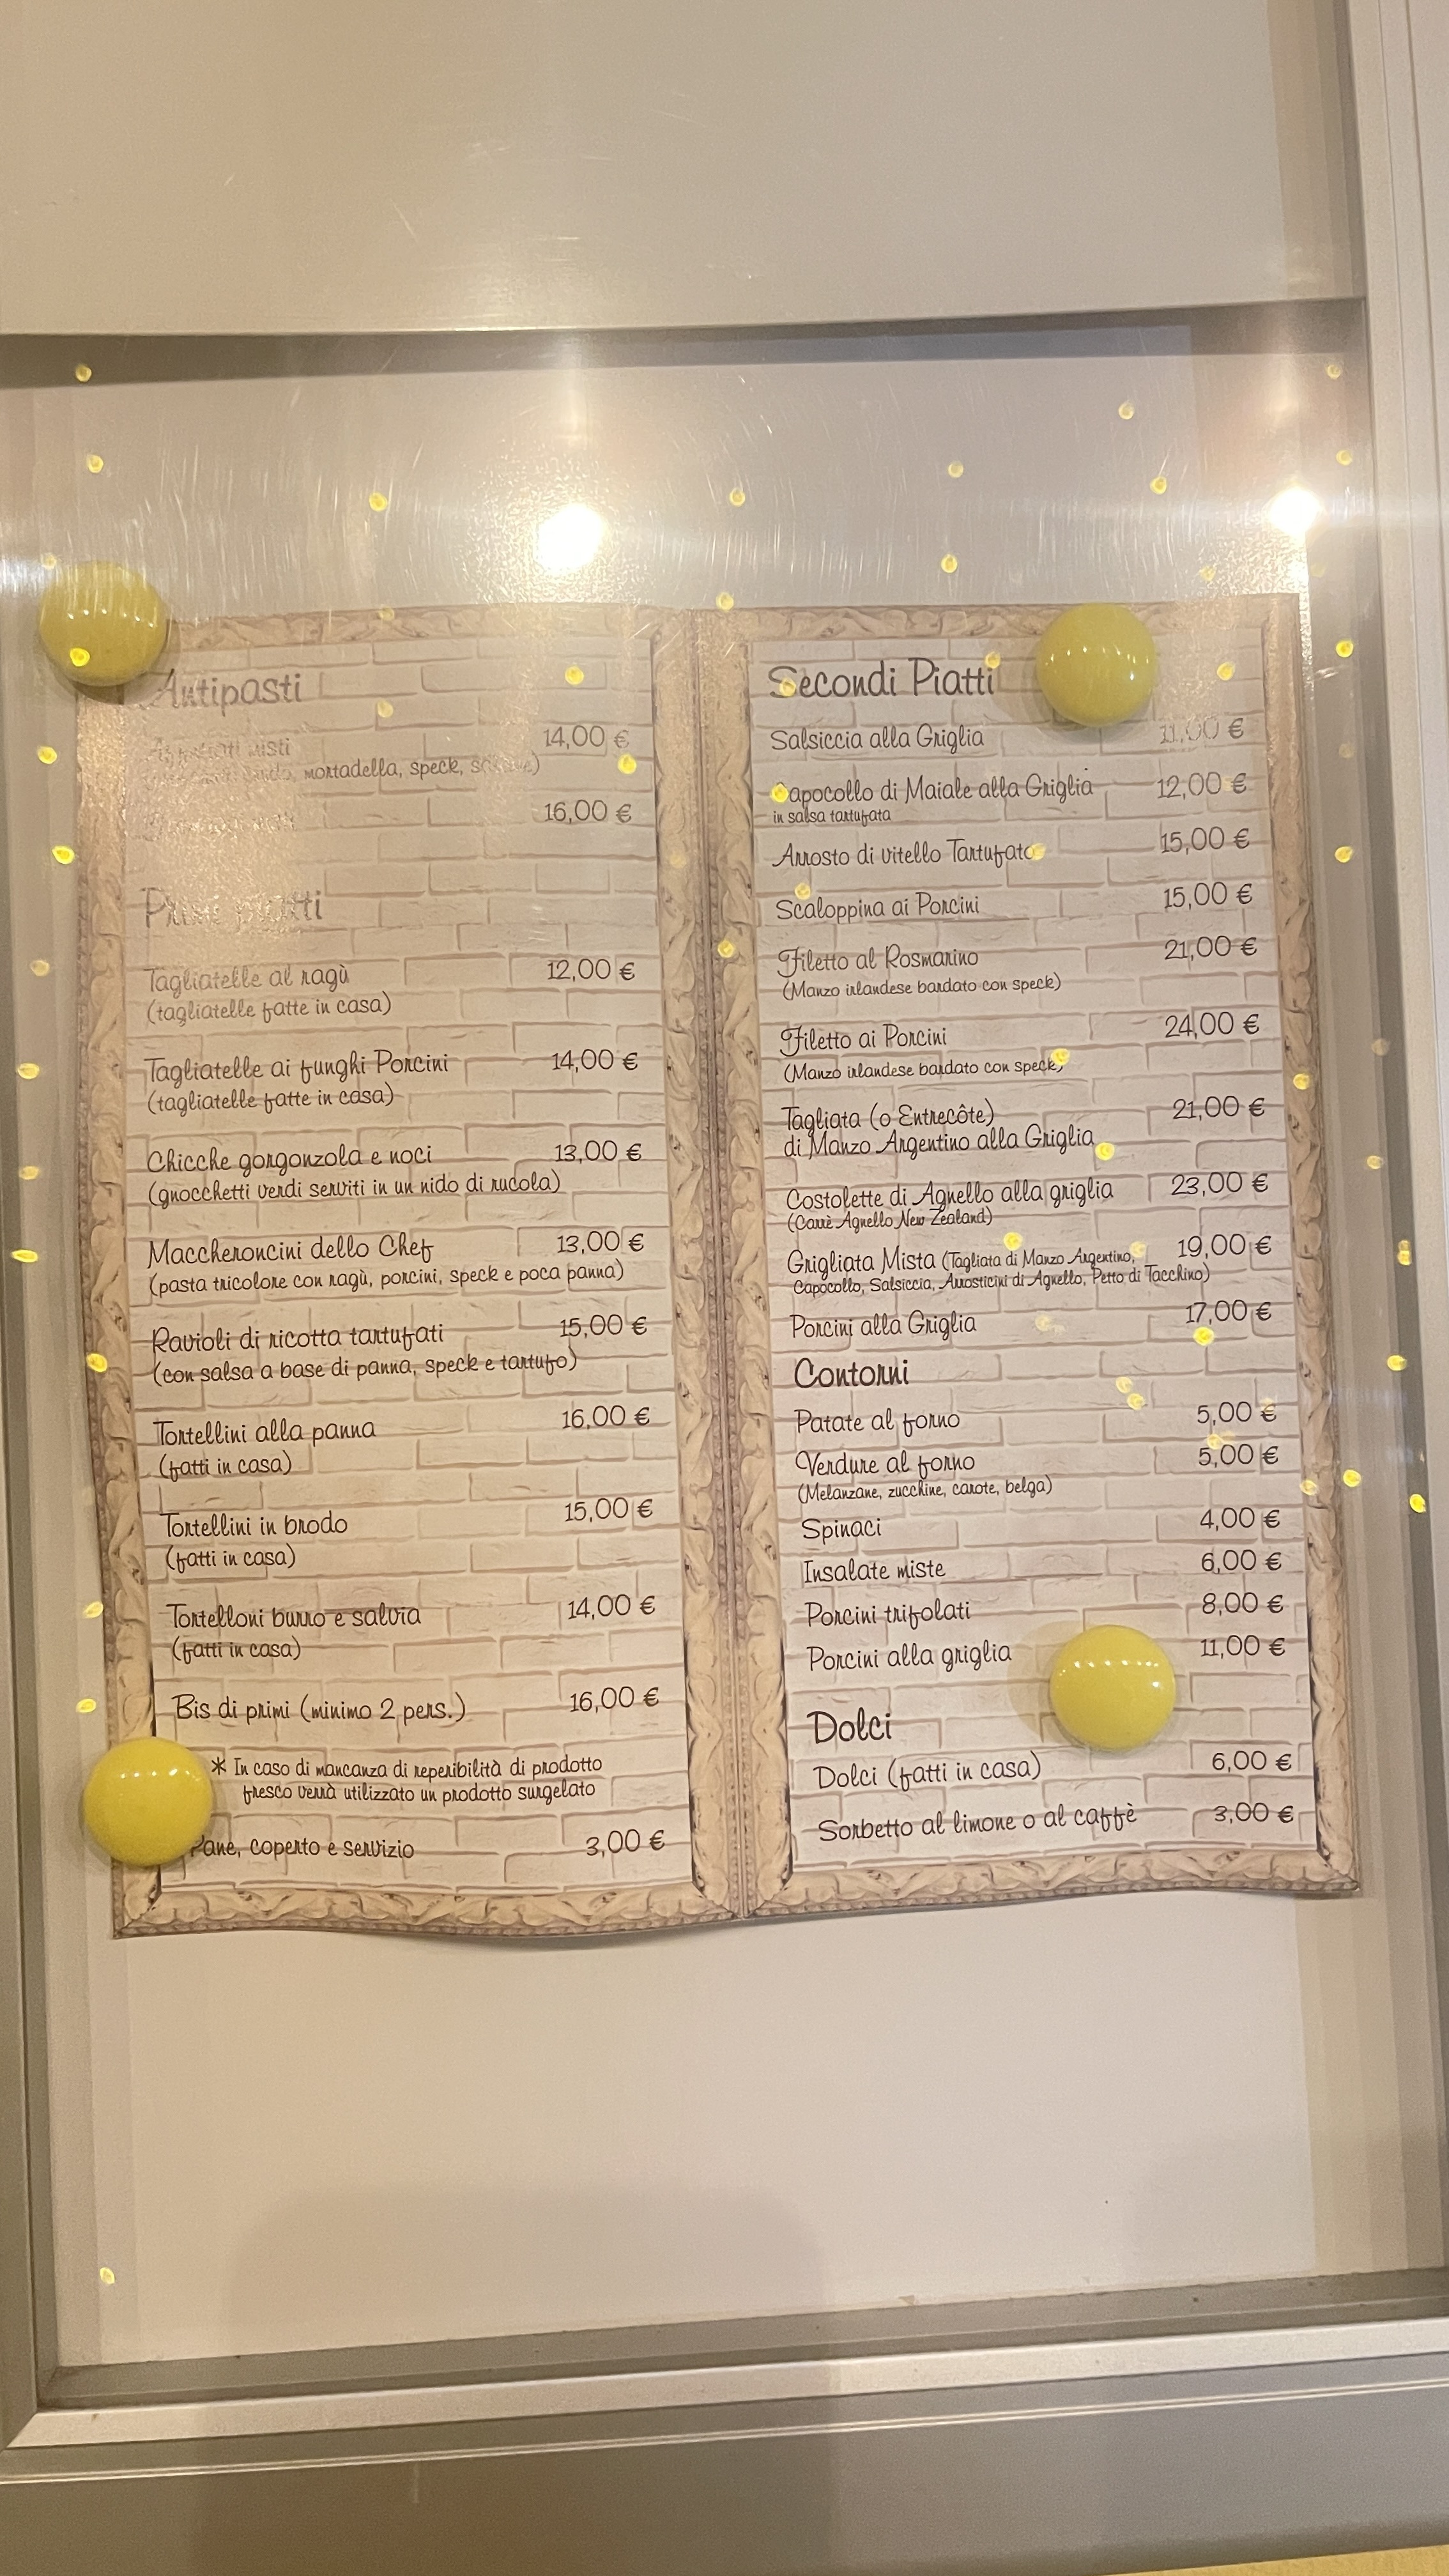 Antipasti
misti 14,00 €
mortadella, speck,
16,00 €
Primi piatti
Tagliatelle al ragù 12,00 €
(tagliatelle fatte in casa)
Tagliatelle ai funghi Porcini 14,00 €
(tagliatelle fatte in casa)
Chicche gorgonzola e noci 13,00 €
(gnocchetti verdi serviti in un nido di rucola)
Maccheroncini dello Chef 13,00 €
(pasta tricolore con ragù, porcini, speck e poca panna)
Ravioli di ricotta tartufati 15,00 €
(con salsa a base di panna, speck e tartufo)
Tortellini alla panna 16,00 €
(fatti in casa)
Tortellini in brodo 15,00 €
(fatti in casa)
Tortelloni burro e salvia 14,00 €
(fatti in casa)
Bis di primi (minimo 2 pers.) 16,00 €
* In caso di mancanza di reperibilità di prodotto
fresco verrà utilizzato un prodotto surgelato
Pane, coperto e servizio 3,00 €
Secondi Piatti
Salsiccia alla Griglia 11,00 €
Capocollo di Maiale alla Griglia 12,00 €
in salsa tartufata
Arrosto di vitello Tartufato 15,00 €
Scaloppina ai Porcini 15,00 €
Filetto al Rosmarino 21,00 €
(Manzo irlandese bardato con speck)
Filetto ai Porcini 24,00 €
(Manzo irlandese bardato con speck)
Tagliata (o Entrecôte) 21,00 €
di Manzo Argentino alla Griglia
Costolette di Agnello alla griglia 23,00 €
(Carrè Agnello New Zealand)
Grigliata Mista (Tagliata di Manzo Argentino, 19,00 €
Capocollo, Salsiccia, Arrosticini di Agnello, Petto di Tacchino)
Porcini alla Griglia 17,00 €
Contorni
Patate al forno 5,00 €
Verdure al forno 5,00 €
(Melanzane, zucchine, carote, belga)
Spinaci 4,00 €
Insalate miste 6,00 €
Porcini trifolati 8,00 €
Porcini alla griglia 11,00 €
Dolci
Dolci (fatti in casa) 6,00 €
Sorbetto al limone o al caffè 3,00 €